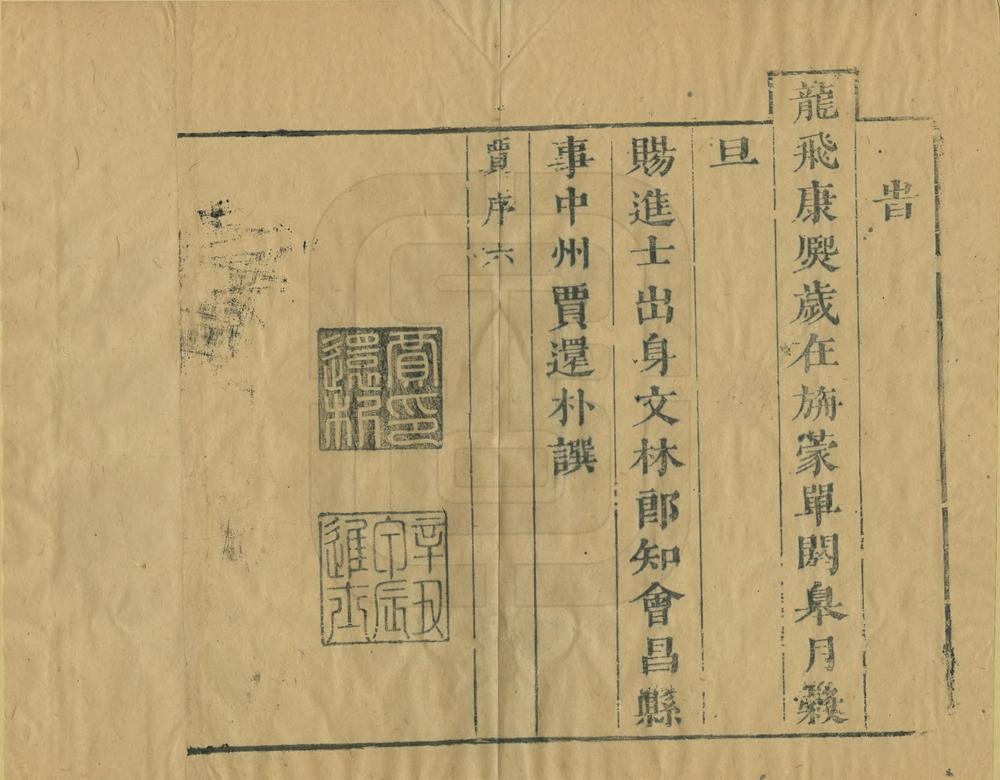 旹
龍飛康熙歲在旃蒙單閼皋月穀
旦
賜進士出身文林郎知會昌縣
事中州賈還朴譔
賈序六
賈印還朴
辛丑
進士